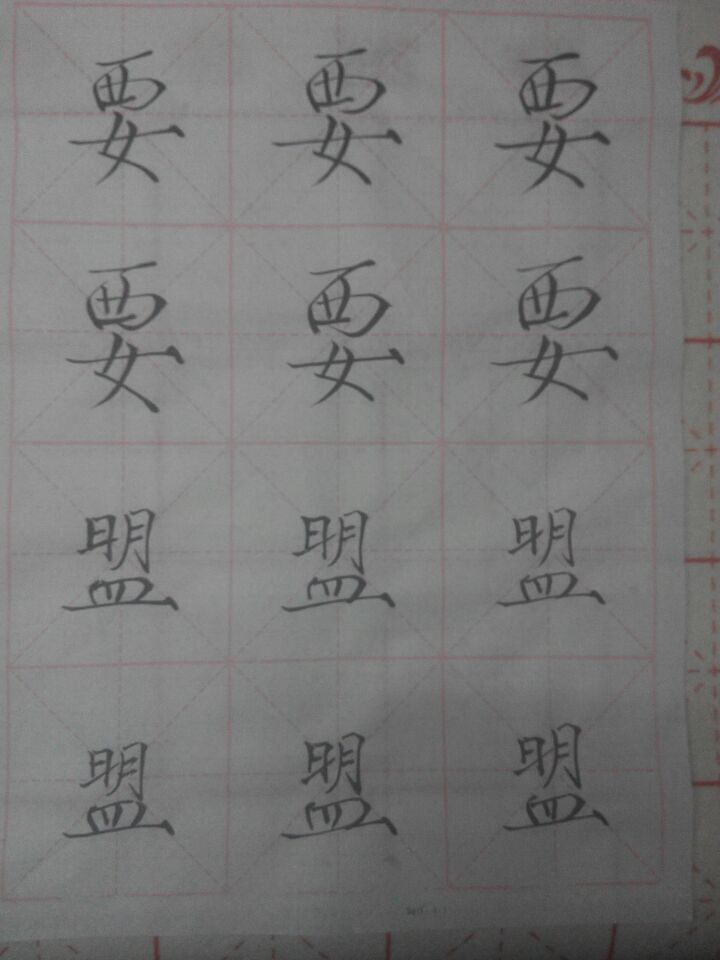 要 要 要
要 要 要
盟 盟 盟
盟 盟 盟